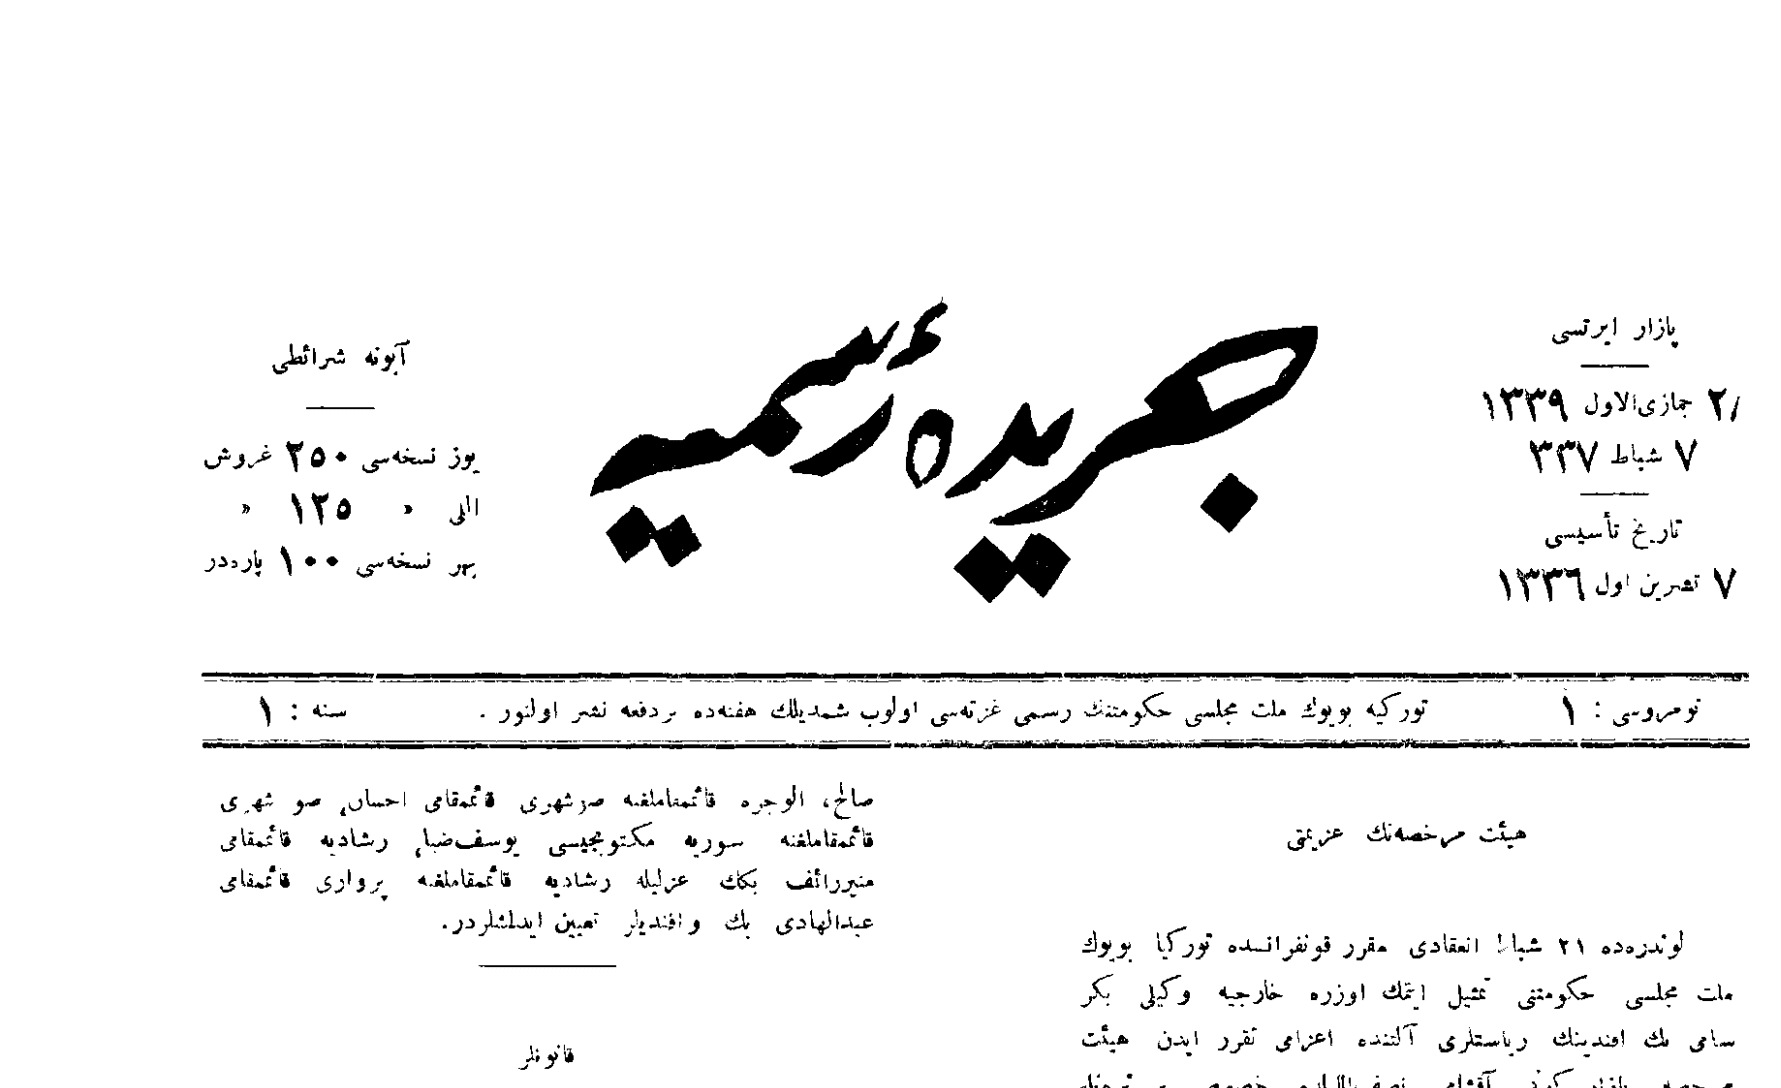 پازار ايرتسى
جمازى‌الاول ١٣٣٩
٧ شباط ٣٣٧
تاريخ تأسيسى
٧ تشرين اول ١٣٣٦
جريدهٔ رسميه
آبونه شرائطى
يوز نسخه‌سى ٢٥٠ غروش
اللى « ١٢٥ «
بهر نسخه‌سى ١٠٠ پاره‌در
نومروسى : ١
توركيه بويوك ملت مجلسى حكومتنك رسمى غزته‌سى اولوب شمديلك هفته‌ده بردفعه نشر اولنور .
سنه : ١
هيئت مرخصه‌نك عزيمتى
لوندره‌ده ٢١ شباط انعقادى مقرر قونفرانسده توركيا بويوك
ملت مجلسى حكومتنى تمثيل ايتمك اوزره خارجيه وكيلى بكر
سامى بك افندينك رياستلرى آلتنده اعزامى تقرر ايدن هيئت
صالح، الوجره قائممقاملغنه صوشهرى قائممقامى احسان، صو شهرى
قائممقاملغنه سوريه مكتوبجيسى يوسف‌ضيا، رشاديه قائممقامى
منيررائف بكك عزليله رشاديه قائممقاملغنه پروارى قائممقامى
عبدالهادى بك وافنديلر تعيين ايدلمشلردر.
قانونلر